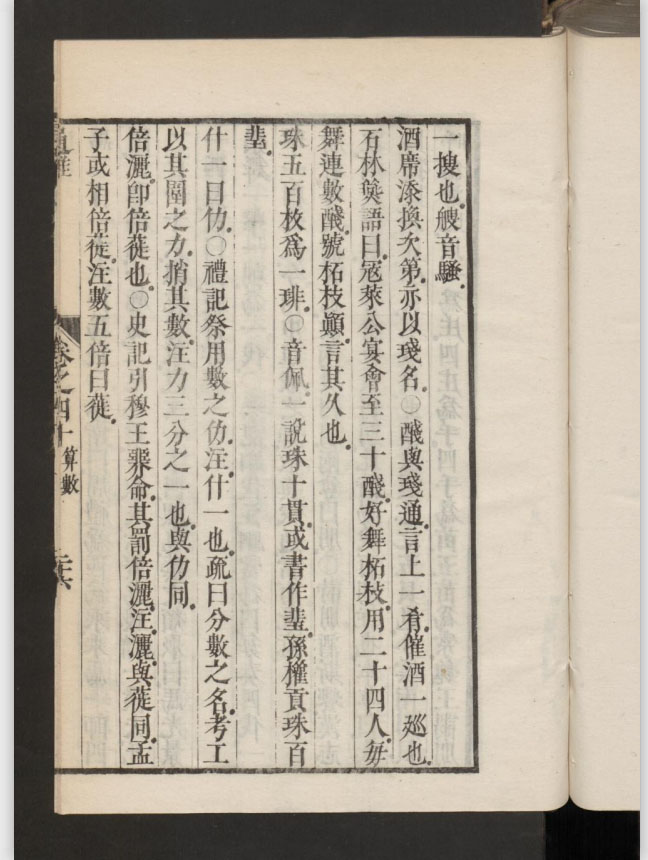 一搜也艘音騷
酒席添換次第亦以琖名○醆與琖通言上一肴催酒一廵也
石林燕語曰冦萊公宴會至三十醆好舞柘枝用二十四人每
舞連數醆號柘枝顛言其久也
珠五百枚爲一琲○音佩一說珠十貫或書作蜚孫權貢珠百
蜚
什一曰仂○禮記祭用數之仂注什一也疏曰分數之名考工
以其圍之仂捎其數注力三分之一也與仂同
倍灑卽倍蓰也○史記引穆王粊命其罰倍灑注灑與蓰同孟
子或相倍蓰注數五倍曰蓰
通雅
卷之四十
算數